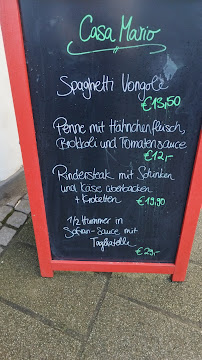 Casa Mario
Spaghetti Vongole
€13,50
Penne mit Hähnchenfleisch,
Brokkoli und Tomatensauce
€12,-
Rindersteak mit Schinken
und Käse überbacken
+ Kroketten €19,90
1/2 Hummer in
Safran-Sauce mit
Tagliatelle
€29,-